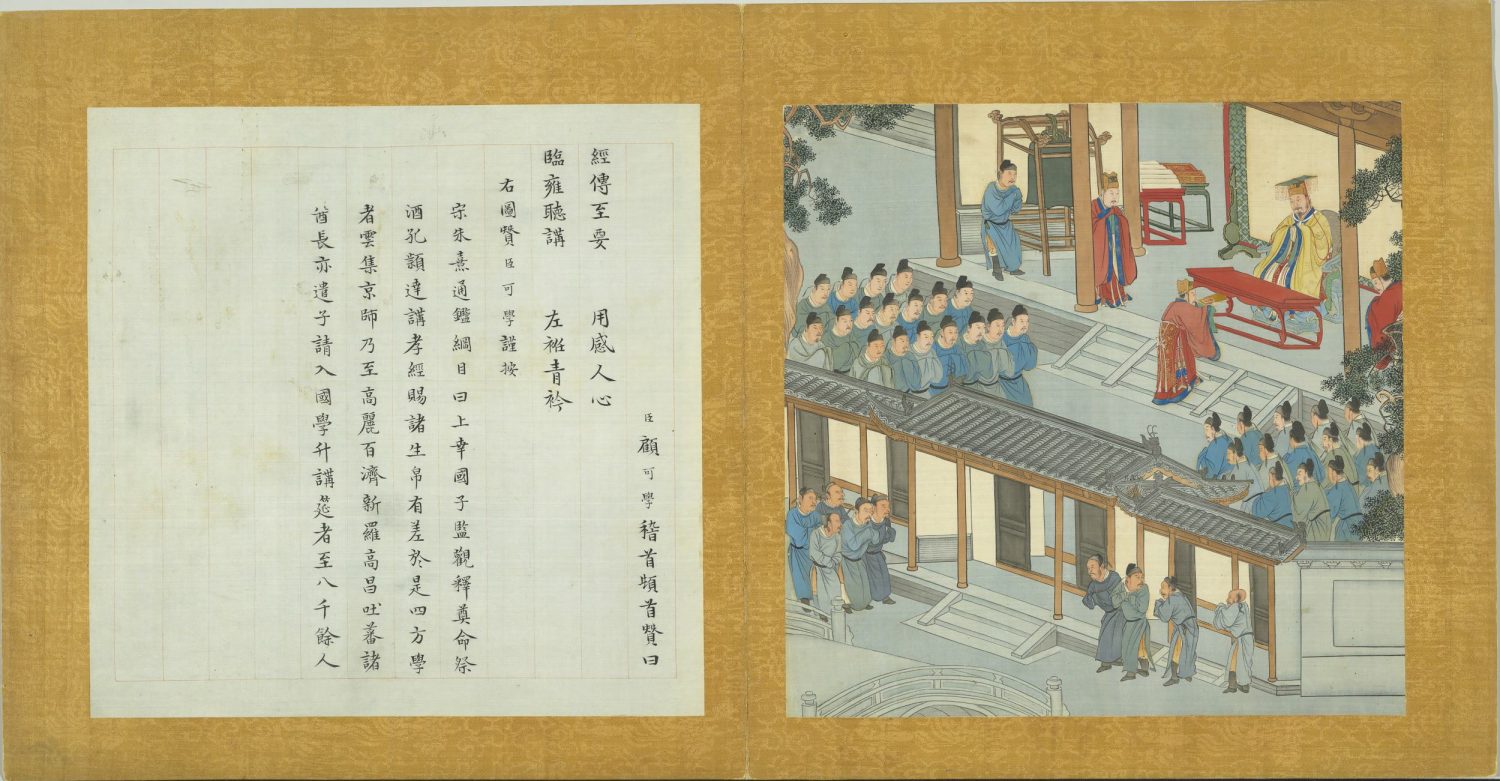 臣顧可學稽首頓首賛曰
經傳至要 用感人心
臨雍聽講 左袵青衿
右圖賛臣可學謹按
宋朱熹通鑑綱目曰上幸國子監觀釋奠命祭
酒孔穎達講孝經賜諸生帛有差於是四方學
者雲集京師乃至高麗百濟新羅高昌吐蕃諸
酋長亦遣子請入國學升講筵者至八千餘人